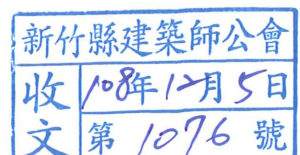 新竹縣建築師公會
收文 108年12月5日
第1076號